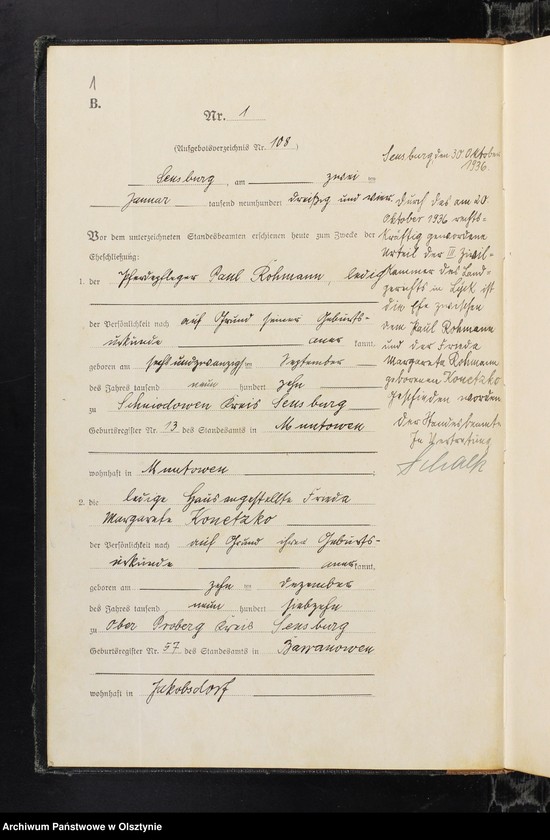 1
B.
Nr. 1
(Aufgebotsverzeichnis Nr. 108)
Sensburg, am zwei ten
Januar tausend neunhundert dreißig und vier.
Vor dem unterzeichneten Standesbeamten erschienen heute zum Zwecke der
Eheschließung:
1. der Pferdepfleger Paul Rohmann, ledig
der Persönlichkeit nach auf Grund seiner Geburts-
urkunde aner kannt,
geboren am sechsundzwanzigsten September
des Jahres tausend neun hundert zehn
zu Schniodowen Kreis Sensburg
Geburtsregister Nr. 13 des Standesamts in Muntowen
wohnhaft in Muntowen ;
2. die ledige Hausangestellte Frieda
Margarete Konetzko
der Persönlichkeit nach auf Grund ihrer Geburts-
urkunde aner kannt,
geboren am zehn ten Dezember
des Jahres tausend neun hundert siebzehn
zu Ober Proberg Kreis Sensburg
Geburtsregister Nr. 57 des Standesamts in Barranowen
wohnhaft in Jakobsdorf
Sensburg den 30. Oktober
1936.
Durch das am 20.
Oktober 1936 rechts-
kräftig gewordene
Urteil der III Zivil-
kammer des Land-
gerichts in Lyck ist
die Ehe zwischen
dem Paul Rohmann
und der Frieda
Margarete Rohmann
geborenen Konetzko
geschieden worden
Der Standesbeamte
In Vertretung
Schalk
Archiwum Państwowe w Olsztynie